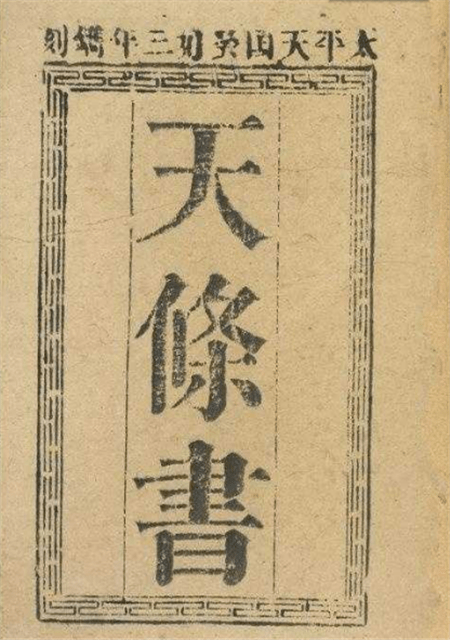 太平天囯癸好三年鐫刻
天條書